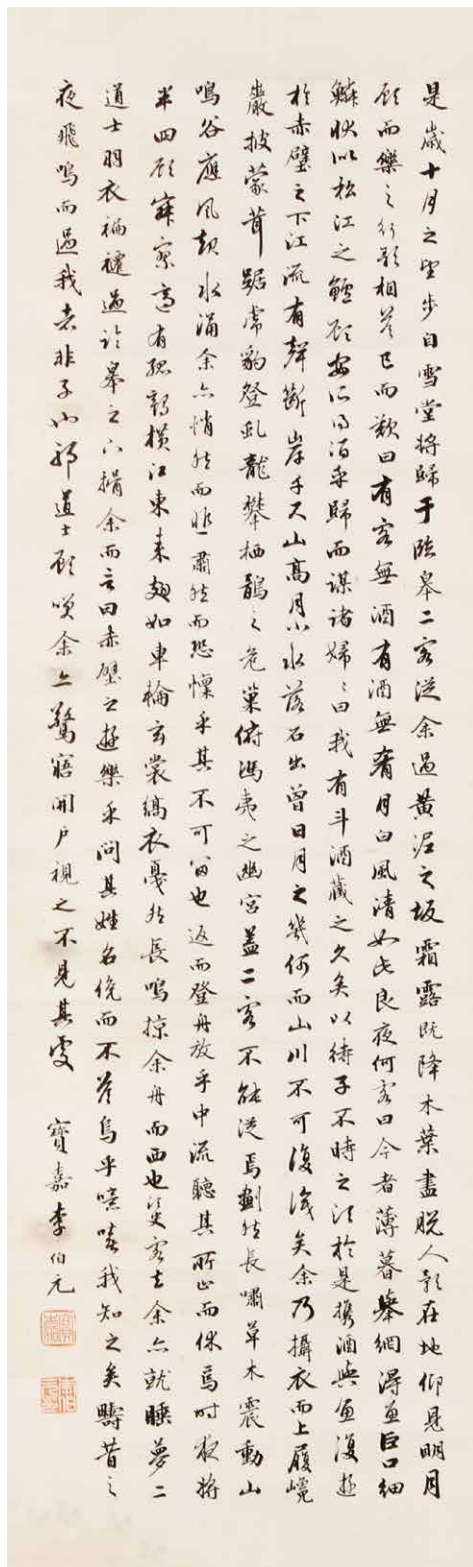 是歲十月之望步自雪堂將歸于臨皋二客從余過黃泥之坂霜露既降木葉盡脫人影在地仰見明月
顧而樂之行歌相答已而歎曰有客無酒有酒無肴月白風清如此良夜何客曰今者薄暮舉網得魚巨口細
鱗狀似松江之鱸顧安所得酒乎歸而謀諸婦〻曰我有斗酒藏之久矣以待子不時之須於是攜酒與魚復遊
於赤壁之下江流有聲斷岸千尺山高月小水落石出曾日月之幾何而山川不可復識矣余乃攝衣而上履巉
巖披蒙茸踞虎豹登虬龍攀栖鶻之危巢俯馮夷之幽宮蓋二客不能從焉劃然長嘯草木震動山
鳴谷應風起水涌余亦悄然而悲肅然而恐懍乎其不可留也返而登舟放乎中流聽其所止而休焉時夜將
半四顧寂寥適有孤鶴橫江東來翅如車輪玄裳縞衣戛然長鳴掠余舟而西也須臾客去余亦就睡夢二
道士羽衣褊褼過臨皋之下揖余而言曰赤壁之遊樂乎問其姓名俛而不答烏乎噫嘻我知之矣疇昔之
夜飛鳴而過我者非子也邪道士顧笑余亦驚寤開戶視之不見其處 寶嘉李伯元